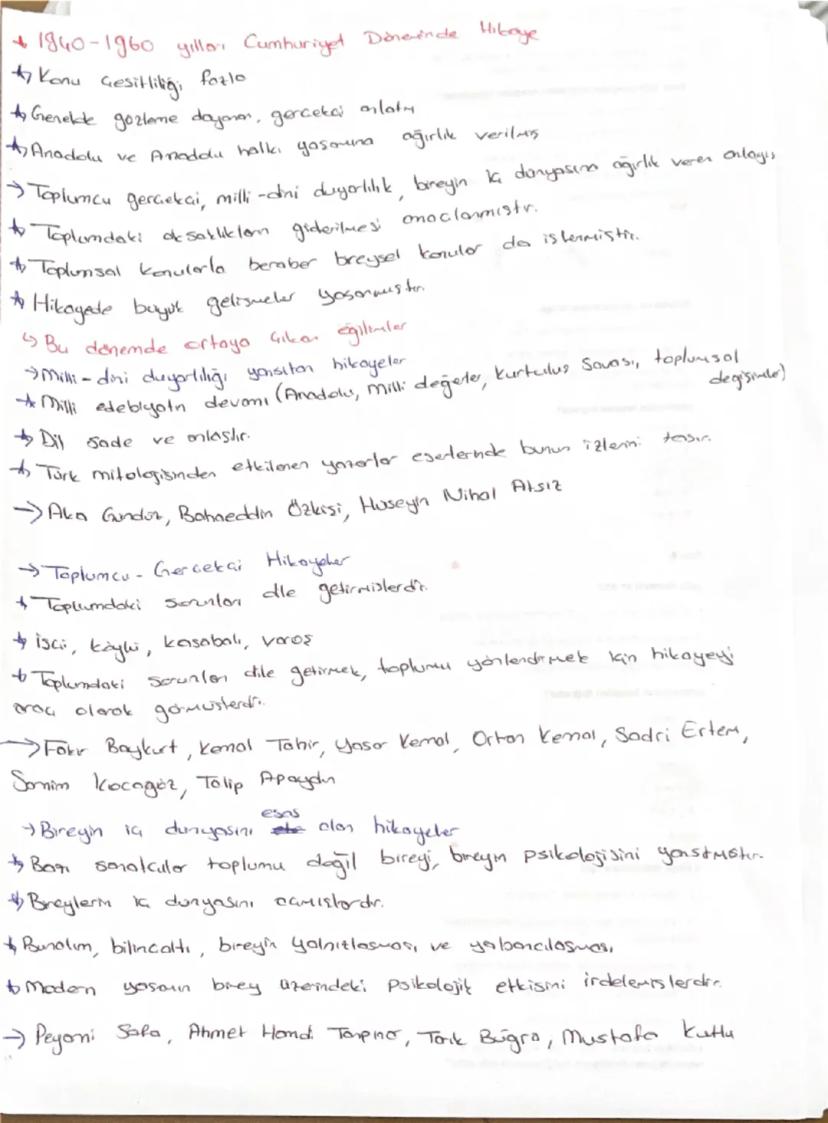 * 1940-1960 yılları Cumhuriyet Döneminde Hikaye
* Konu çeşitliliği fazla
* Genelde gözleme dayanan, gerçekçi anlatım
* Anadolu ve Anadolu halkı yaşamına ağırlık verilmiş
→ Toplumcu gerçekçi, milli-dini duyarlılık, bireyin iç dünyasına ağırlık veren anlayış
* Toplumdaki aksaklıkların giderilmesi amaçlanmıştır.
* Toplumsal konularla beraber bireysel konular da işlenmiştir.
* Hikayede büyük gelişmeler yaşanmıştır.
↳ Bu dönemde ortaya çıkan eğilimler
→ Milli-dini duyarlılığı yansıtan hikayeler
* Milli edebiyatın devamı (Anadolu, milli değerler, Kurtuluş Savaşı, toplumsal değişimler)
* Dil sade ve anlaşılır.
* Türk mitolojisinden etkilenen yazarlar eserlerinde bunun izlerini taşır.
→ Aka Gündüz, Bahaeddin Özkişi, Hüseyin Nihal Atsız
→ Toplumcu-Gerçekçi Hikayeler
* Toplumdaki sorunları dile getirmişlerdir.
* İşçi, köylü, kasabalı, varoş
* Toplumdaki sorunları dile getirmek, toplumu yönlendirmek için hikayeyi
araç olarak görmüşlerdir.
→ Fakir Baykurt, Kemal Tahir, Yaşar Kemal, Orhan Kemal, Sadri Ertem,
Samim Kocagöz, Talip Apaydın
→ Bireyin iç dünyasını esas alan hikayeler
* Bazı sanatçılar toplumu değil bireyi, bireyin psikolojisini yansıtmıştır.
* Bireylerin iç dünyasını açmışlardır.
* Bunalım, bilinçaltı, bireyin yalnızlaşması ve yabancılaşması
* Modern yaşamın birey üzerindeki psikolojik etkisini irdelemişlerdir.
→ Peyami Safa, Ahmet Hamdi Tanpınar, Tarık Buğra, Mustafa Kutlu